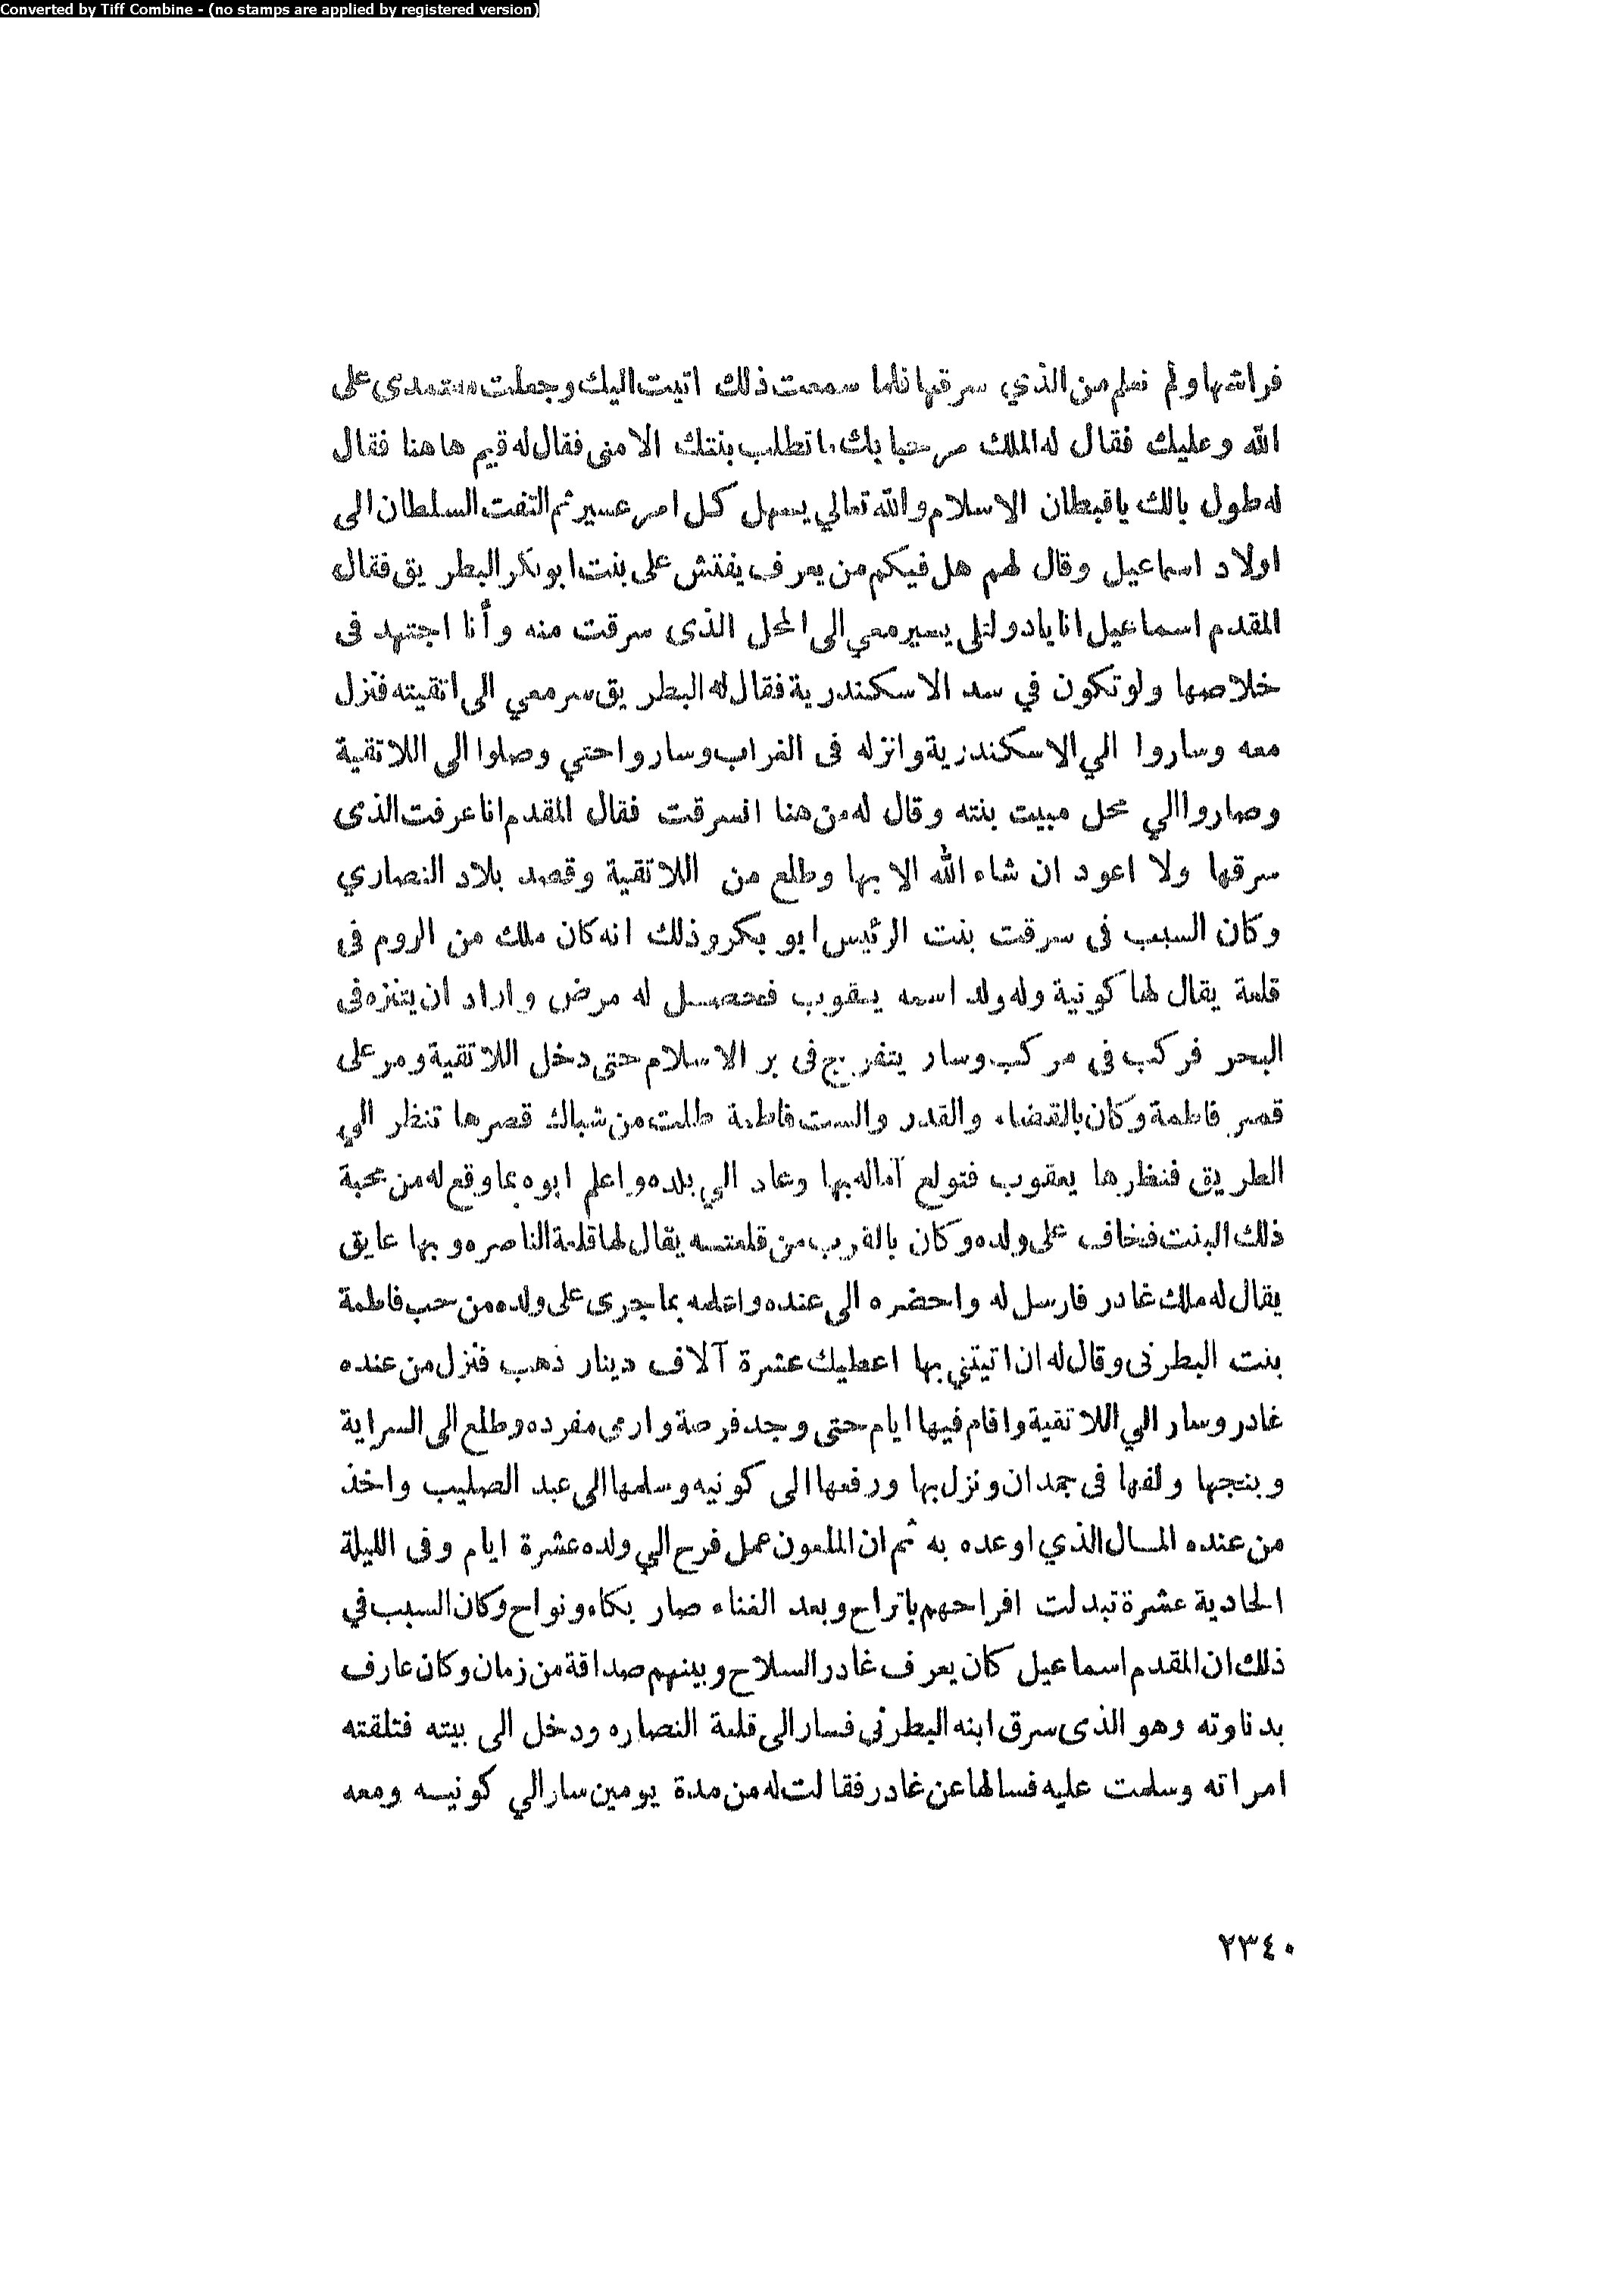 Converted by Tiff Combine - (no stamps are applied by registered version)
فراشها ولم نعلم من الذي سرقها فلما سمعت ذلك اتيت اليك وجعلت معتمدى على
الله وعليك فقال له الملك مرحبا بك ما تطلب بنتك الا منى فقال له قيم هاهنا فقال
له طول بالك ياقبطان الاسلام والله تعالي يسهل كل امر عسير ثم التفت السلطان الى
اولاد اسماعيل وقال لهم هل فيكم من يعرف يفتش على بنت ابو بكر البطريق فقال
المقدم اسماعيل انا يادولتلى يسير معي الى المحل الذى سرقت منه وأنا اجتهد فى
خلاصها ولو تكون في سد الاسكندرية فقال له البطريق سر معي الى اتقيته فنزل
معه وساروا الي الاسكندرية وانزله فى الغراب وساروا حتي وصلوا الى اللاتقية
وصاروا الي محل مبيت بنته وقال له من هنا انسرقت فقال المقدم انا عرفت الذى
سرقها ولا اعود ان شاء الله الا بها وطلع من اللاتقية وقصد بلاد النصاري
وكان السبب فى سرقت بنت الرئيس ابو بكر وذلك انه كان ملك من الروم فى
قلعة يقال لها كونية وله ولد اسمه يعقوب فحصل له مرض واراد ان يتنزه فى
البحر فركب فى مركب وسار يتفرج فى بر الاسلام حتى دخل اللاتقية ومر على
قصر فاطمة وكان بالقضاء والقدر والست فاطمة طلت من شباك قصرها تنظر الي
الطريق فنظرها يعقوب فتولع آماله بها وعاد الي بلده واعلم ابوه بما وقع له من محبة
ذلك البنت فخاف على ولده وكان بالقرب من قلعتسه يقال لها قلعة الناصره وبها عايق
يقال له ملك غادر فارسل له واحضره الى عنده واعلمه بما جرى على ولده من حب فاطمة
بنت البطرنى وقال له ان اتيتني بها اعطيك عشرة آلاف دينار ذهب فنزل من عنده
غادر وسار الي اللاتقية واقام فيها ايام حتى وجد فرصة وارمى مفرده وطلع الى السراية
وبنجها ولفها فى جمدان ونزل بها ورفعها الى كونيه وسلمها الى عبد الصليب واخذ
من عنده المال الذي اوعده به ثم ان الملعون عمل فرح الي ولده عشرة ايام وفى الليلة
الحادية عشرة تبدلت افراحهم باتراح وبعد الغناء صار بكاء ونواح وكان السبب في
ذلك ان المقدم اسماعيل كان يعرف غادر السلاح وبينهم صداقة من زمان وكان عارف
بدناوته وهو الذى سرق ابنه البطرني فسار الى قلعة النصاره ودخل الى بيته فتلقته
امراته وسلمت عليه فسالها عن غادر فقالت له من مدة يومين سار الي كونيسه ومعه
٢٣٤٠